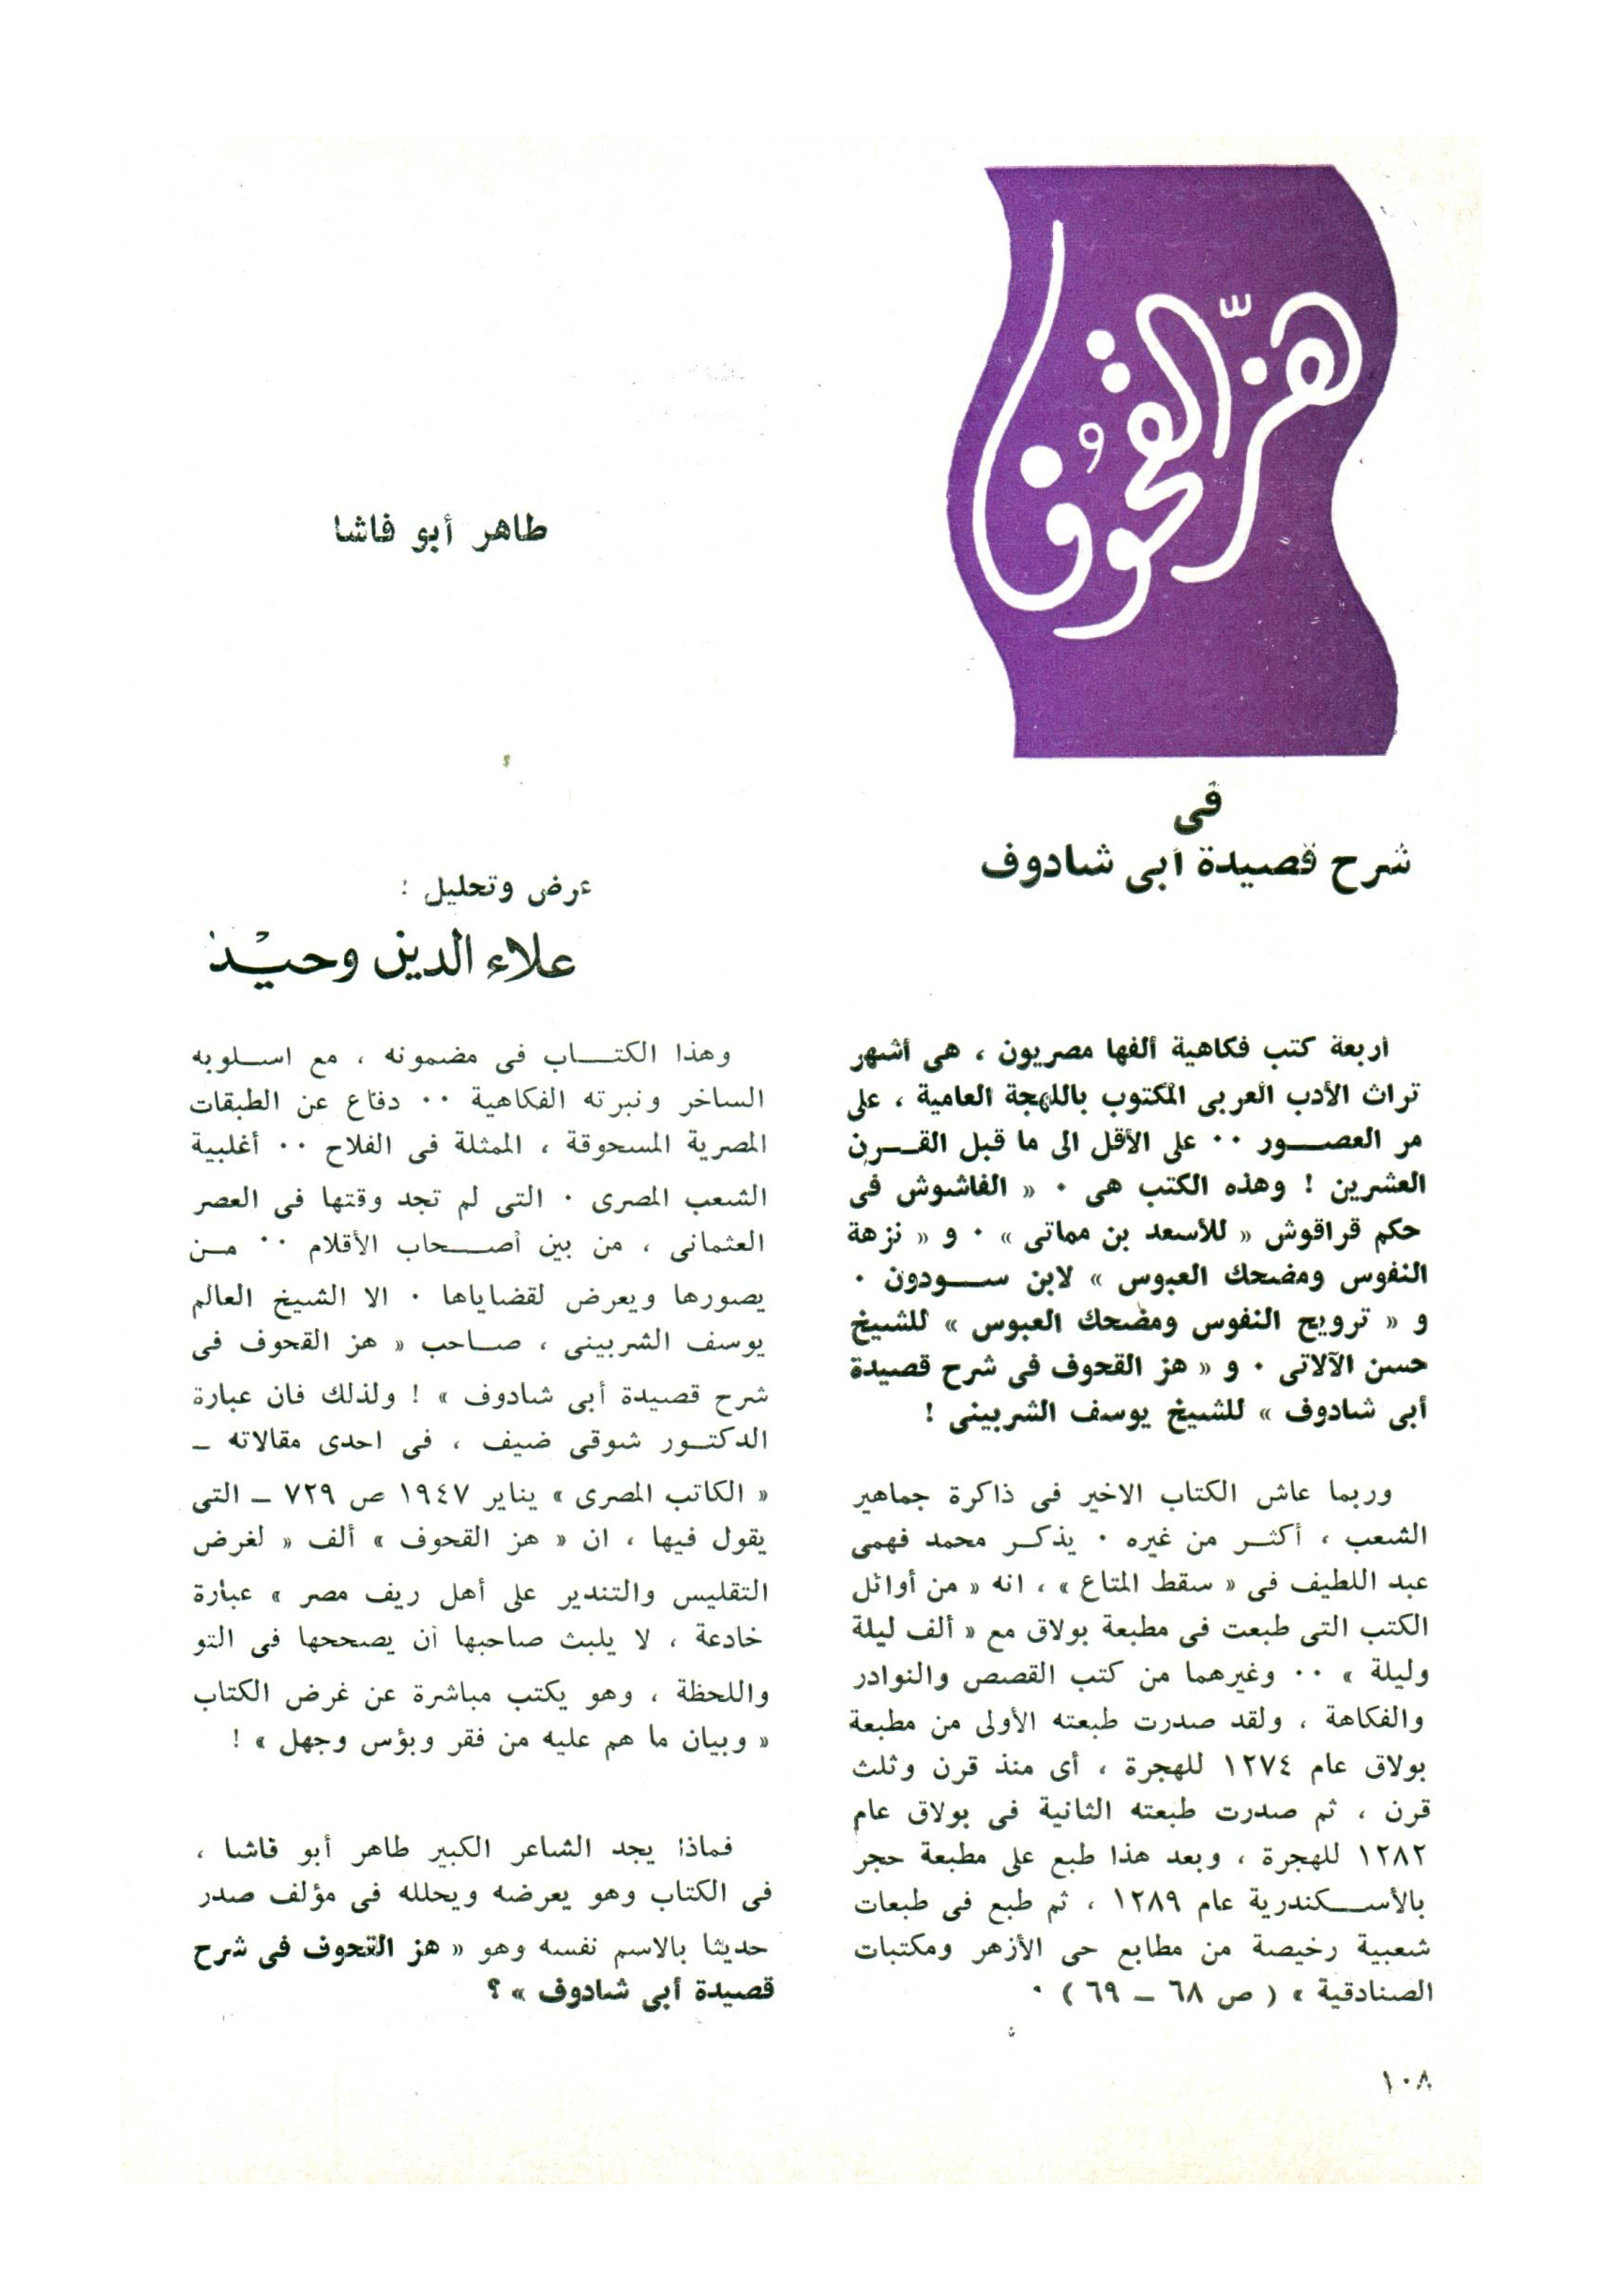 هزّ القحوف
فى
شرح قصيدة أبى شادوف
طاهر أبو فاشا
عرض وتحليل :
علاء الدين وحيد
أربعة كتب فكاهية ألفها مصريون ، هى أشهر
تراث الأدب العربى المكتوب باللهجة العامية ، على
مر العصور ٠٠ على الأقل الى ما قبل القرن
العشرين ! وهذه الكتب هى ٠ « الفاشوش فى
حكم قراقوش « للأسعد بن مماتى » ٠ و « نزهة
النفوس ومضحك العبوس » لابن سودون ٠
و « ترويح النفوس ومضحك العبوس » للشيخ
حسن الآلاتى ٠ و « هز القحوف فى شرح قصيدة
أبى شادوف » للشيخ يوسف الشربينى !
وربما عاش الكتاب الاخير فى ذاكرة جماهير
الشعب ، أكثر من غيره ٠ يذكر محمد فهمى
عبد اللطيف فى « سقط المتاع » ، انه « من أوائل
الكتب التى طبعت فى مطبعة بولاق مع « ألف ليلة
وليلة » ٠٠ وغيرهما من كتب القصص والنوادر
والفكاهة ، ولقد صدرت طبعته الأولى من مطبعة
بولاق عام ١٢٧٤ للهجرة ، أى منذ قرن وثلث
قرن ، ثم صدرت طبعته الثانية فى بولاق عام
١٢٨٢ للهجرة ، وبعد هذا طبع على مطبعة حجر
بالأسكندرية عام ١٢٨٩ ، ثم طبع فى طبعات
شعبية رخيصة من مطابع حى الأزهر ومكتبات
الصنادقية » ( ص ٦٨ ــ ٦٩ ) ٠
وهذا الكتاب فى مضمونه ، مع اسلوبه
الساخر ونبرته الفكاهية ٠٠ دفاع عن الطبقات
المصرية المسحوقة ، الممثلة فى الفلاح ٠٠ أغلبية
الشعب المصرى ٠ التى لم تجد وقتها فى العصر
العثمانى ، من بين أصحاب الأقلام ٠٠ من
يصورها ويعرض لقضاياها ٠ الا الشيخ العالم
يوسف الشربينى ، صاحب « هز القحوف فى
شرح قصيدة أبى شادوف » ! ولذلك فان عبارة
الدكتور شوقى ضيف ، فى احدى مقالاته ــ
« الكاتب المصرى » يناير ١٩٤٧ ص ٧٢٩ ــ التى
يقول فيها ، ان « هز القحوف » ألف « لغرض
التقليس والتندير على أهل ريف مصر » عبارة
خادعة ، لا يلبث صاحبها أن يصححها فى التو
واللحظة ، وهو يكتب مباشرة عن غرض الكتاب
« وبيان ما هم عليه من فقر وبؤس وجهل » !
فماذا يجد الشاعر الكبير طاهر أبو فاشا ،
فى الكتاب وهو يعرضه ويحلله فى مؤلف صدر
حديثا بالاسم نفسه وهو « هز القحوف فى شرح
قصيدة أبى شادوف » ؟
١٠٨